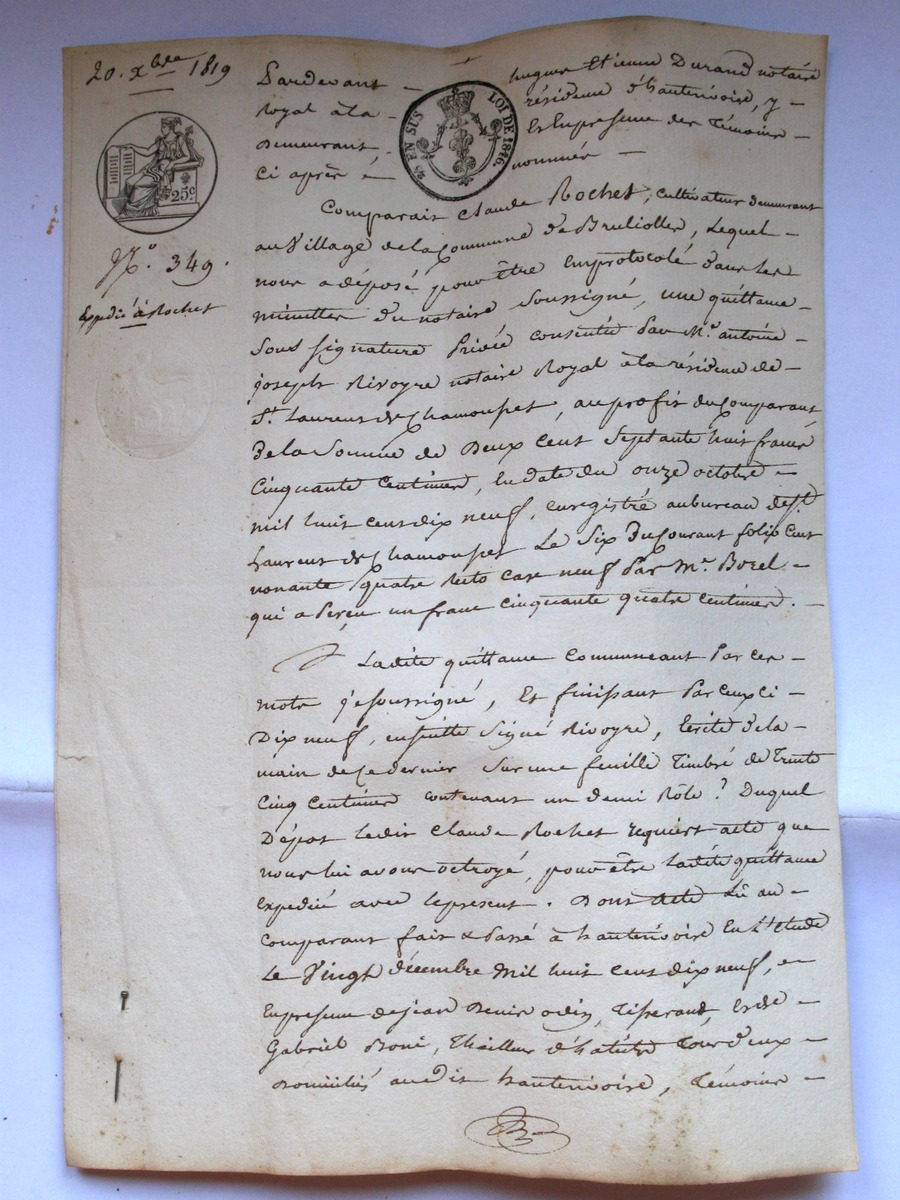 20. xbre 1819
25 c.
N.° 349.
Expedié à Rochet
25 EN SUS LOI DE 1816.
Pardevant hugues Etienne Durand notaire
Royal à la résidence d'hauterivoire, y
Demeurant Et En presense des Témoins
Ci après nommés
Comparait Claude Rochet, cultivateur demeurant
au Village de la Commune de Bruliolles, Lequel
nous a déposé pour être Emprotocolé dans les
minuttes du notaire Soussigné, une quittance
Sous Signature Privée consentie Par M.e antoine
joseph Rivoyre notaire Royal à la résidence de
St. Laurent de Chamousset, au profit du Comparant
De la Somme de Deux Cent Septante huit francs
Cinquante Centimes, En date du onze octobre
mil huit cent dix neuf, enregistré au bureau de St.
Laurent de Chamousset Le Six Du Courant folio Cent
nonante quatre Recto case neuf Par M.r Borel
qui a Perçu un franc cinquante quatre centimes.
Ladite quittance Commenceant Par ces
mots je soussigné, Et finissant Par Ceux Ci
Dix neuf, ensuitte Signé Rivoyre, Ecrite de la
main de Ce dernier Sur une feuille Timbré de Trente
Cinq Centimes contenant un demi Rôle? Duquel
Dépot ledit Claude Rochet requiert acte que
nous lui avons octroyé, pour être ladite quittance
Expediée avec le present. Dont Acte Lû au
Comparant fait & Passé à hauterivoire En L'Etude
Le Vingt décembre Mil huit cent dix neuf, en
En presense de jean Denis odin, Tisserand, Et de
Gabriel Boni, Thailleur d'habits Tous deux
Domiciliés au dit hauterivoire, Témoins